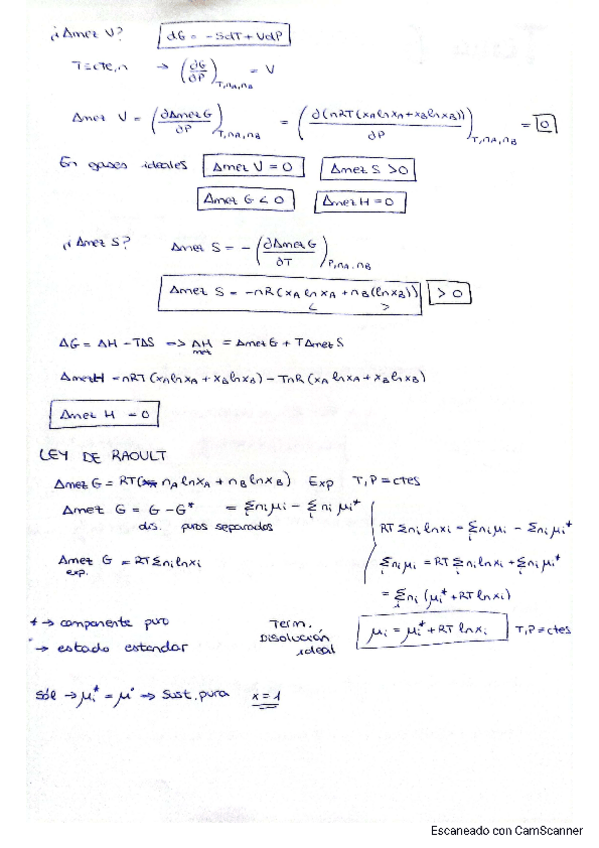 ¿¿Δmez V? dG = -SdT + VdP
T=cte, n → (dG/dP)T,nA,nB = V
Δmez V = (∂ΔmezG/∂P)T,nA,nB = (∂(nRT(xA lnxA + xB lnxB))/∂P)T,nA,nB = 0
En gases ideales Δmez V = 0 Δmez S > 0
Δmez G < 0 Δmez H = 0
¿¿Δmez S? Δmez S = - (∂ΔmezG/∂T)P,nA,nB
Δmez S = -nR(xA lnxA + nB(lnxB)) > 0
< >
ΔG = ΔH - TΔS => ΔH mez = Δmez G + TΔmez S
ΔmezH = nRT (xA lnxA + xB lnxB) - TnR (xA lnxA + xB lnxB)
Δmez H = 0
LEY DE RAOULT
Δmez G = RT(nA lnxA + nB lnxB) Exp T,P = ctes
Δmez G = G - G* = Σniμi - Σ niμi*
dis. puros separados
RT Σni lnxi = Σniμi - Σniμi*
Δmez G = RTΣni lnxi
exp.
Σniμi = RT Σni lnxi + Σniμi*
= Σni (μi* + RT lnxi)
* → componente puro
° → estado estandar
Term. Disolución ideal
μi = μi* + RT lnxi T,P = ctes
Sól → μi* = μ° => Sust. pura x = 1
Escaneado con CamScanner